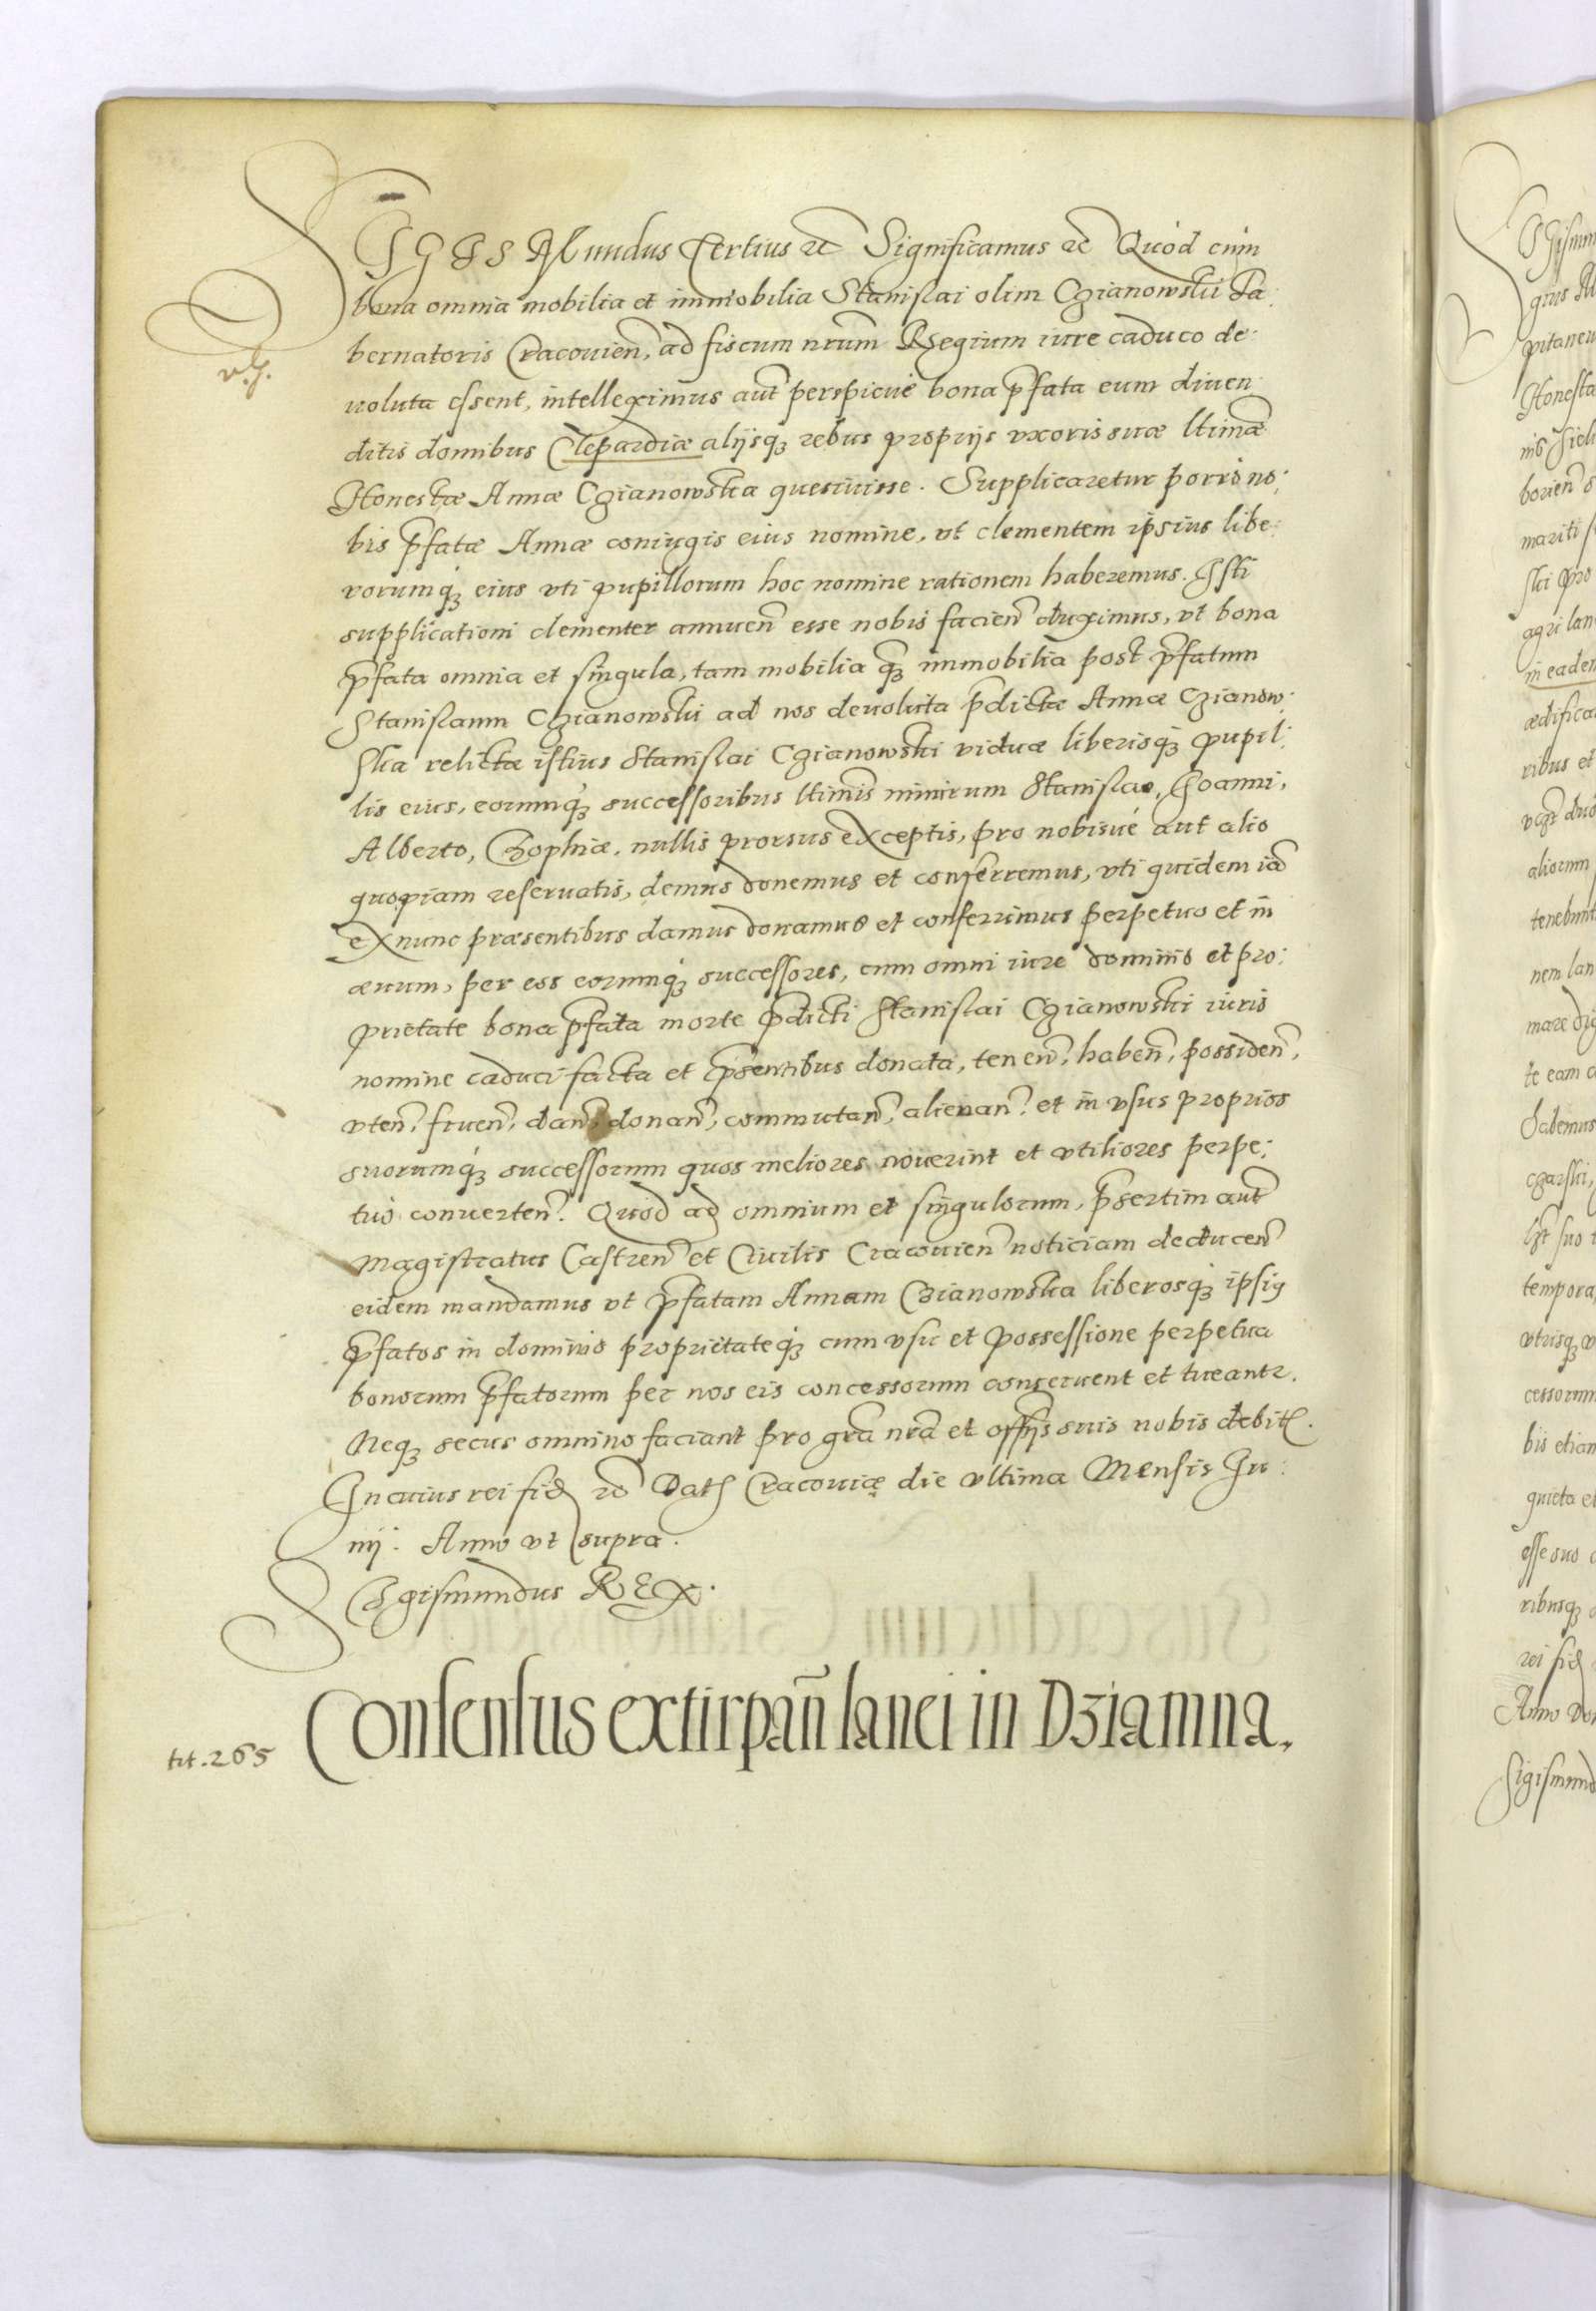 SIGISMundus Tertius etc Significamus etc Quòd cùm
bona omnia mobilia et immobilia Stanislai olim Czianowski Ta:
bernatoris Cracouien̄, ad fiscum nr̄um Regium iure caduco de:
uoluta essent, intelleximus aut̄ perspicuè bona p̄fata eum diuen:
ditis domibus Clepardiæ alijsq́ꝫ rebus proprijs vxoris suæ ltimæ
Honestæ Annæ Czianowska quesiuisse. Supplicaretur porrò no:
bis p̄fatæ Annæ coniugis eius nomine, vt clementem ipsius libe:
rorumq́ꝫ eius vti pupillorum hoc nomine rationem haberemus. Isti
supplicationi clementer annuen̄ esse nobis facien̄ duximus, vt bona
p̄fata omnia et singula, tam mobilia q̄ꝫ immobilia post p̄fatum
Stanislaum Czianowski ad nos deuoluta p̄dictæ Annæ Czianow:
ska relictæ istius Stanislai Czianowski viduæ liberisq́ꝫ pupil:
lis eius, eorumq́ꝫ successoribus ltimis nimirum Stanislao, Joanni,
Alberto, Zophiæ, nullis prorsus exceptis, pro nobisué aut alio
quopiam reseruatis, demus donemus et conferremus, vti quidem iā
ex nunc præsentibus damus donamus et conferrimus perpetuo et in
æuum, per eos eorumq́ꝫ successores, cum omni iure dominio et pro:
prietate bona p̄fata morte p̄dicti Stanislai Czianowski iuris
nomine caduci facta et p̄sentibus donata, tenen̄, haben̄, possiden̄,
vten̄, fruen̄, dan̄, donan̄, commutan̄, alienan̄, et in vsus proprios
suorumq́ꝫ successorum quos meliores nouerint et vtiliores perpe:
tuò conuerten̄. Quod ad omnium et singulorum, p̄sertim aut̄
Magistratus Castren̄ et Ciuilis Cracouien̄ noticiam deducen̄
eidem mandamus vt p̄fatam Annam Czianowska liberosq́ꝫ ipsiꝰ
p̄fatos in dominio proprietateq́ꝫ cum vsu et possessione perpetua
bonorum p̄fatorum per nos eis concessorum conseruent et tueantr.
Neqꝫ secus omnino faciant pro gr̄a nr̄a et offijs suis nobis debitꝭ.
In cuius rei fid etc Datꝭ Cracouiæ die vltima Mensis Ju:
nij. Anno vt supra.
Sigismundus REX.
tit. 265
Consensus extirpan̄ lanei in Dziamna.